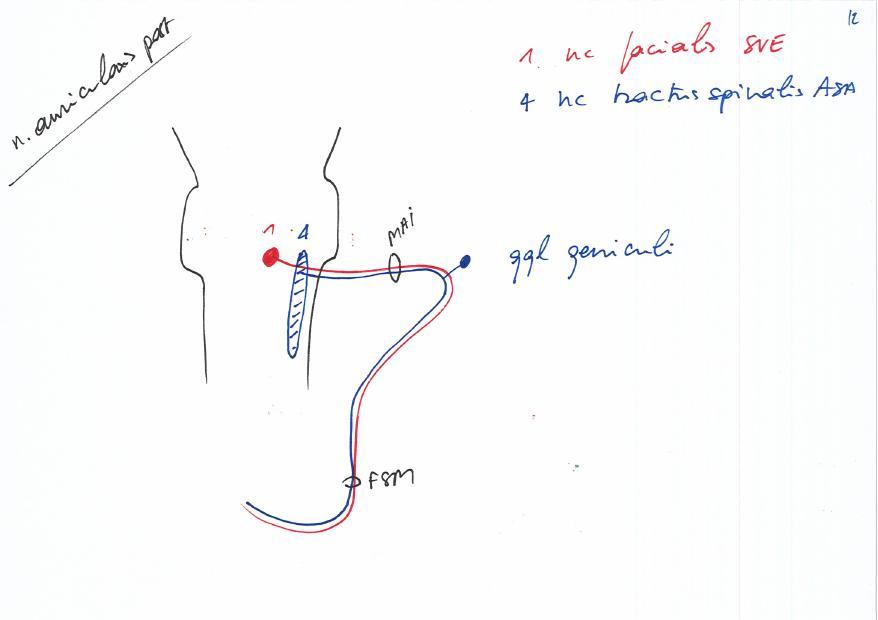 12
n. auricularis post
1 nc facialis SVE
4 nc tractus spinalis ASA
1 4
MAI
ggl geniculi
FSM